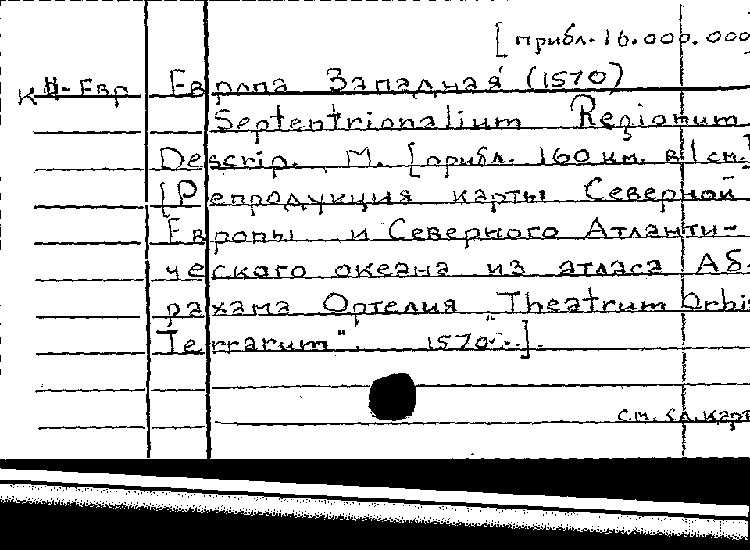 [прибл. 16.000.000
К Н-Евр Европа Западная (1570)
Septentrionalium Regionum
Descrip. М. [прибл. 160 км. в 1 см.]
[Репродукция карты Северной
Европы и Северного Атланти-
ческого океана из атласа Аб-
рахама Ортелия "Theatrum Orbis
Terrarum". 1570.].
см. сл. карт